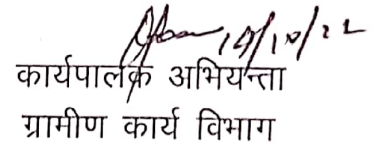 19/10/22
कार्यपालक अभियन्ता
ग्रामीण कार्य विभाग